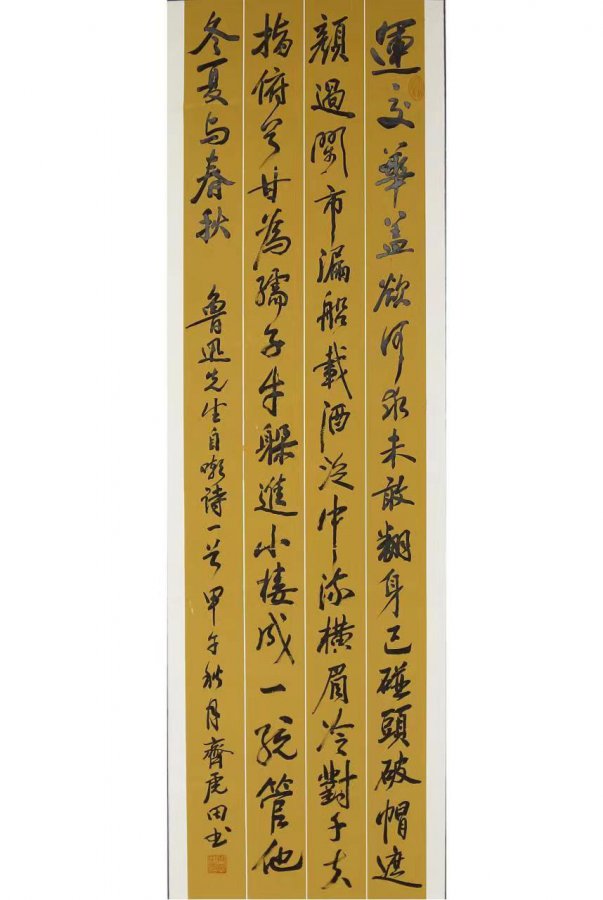 運交華盖欲何求未敢翻身已碰頭破帽遮
顔過鬧市漏船載酒泛中流横眉冷對千夫
指俯首甘為孺子牛躲進小樓成一統管他
冬夏与春秋 魯迅先生自嘲詩一首 甲午秋月齊虎田书